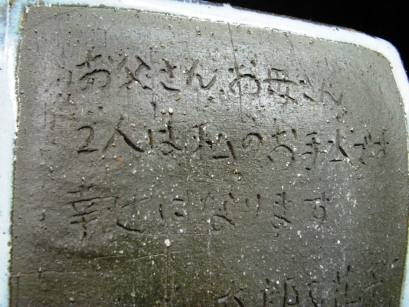 お父さん、お母さん
2人は私のお手本です
幸せになります
太郎&花子